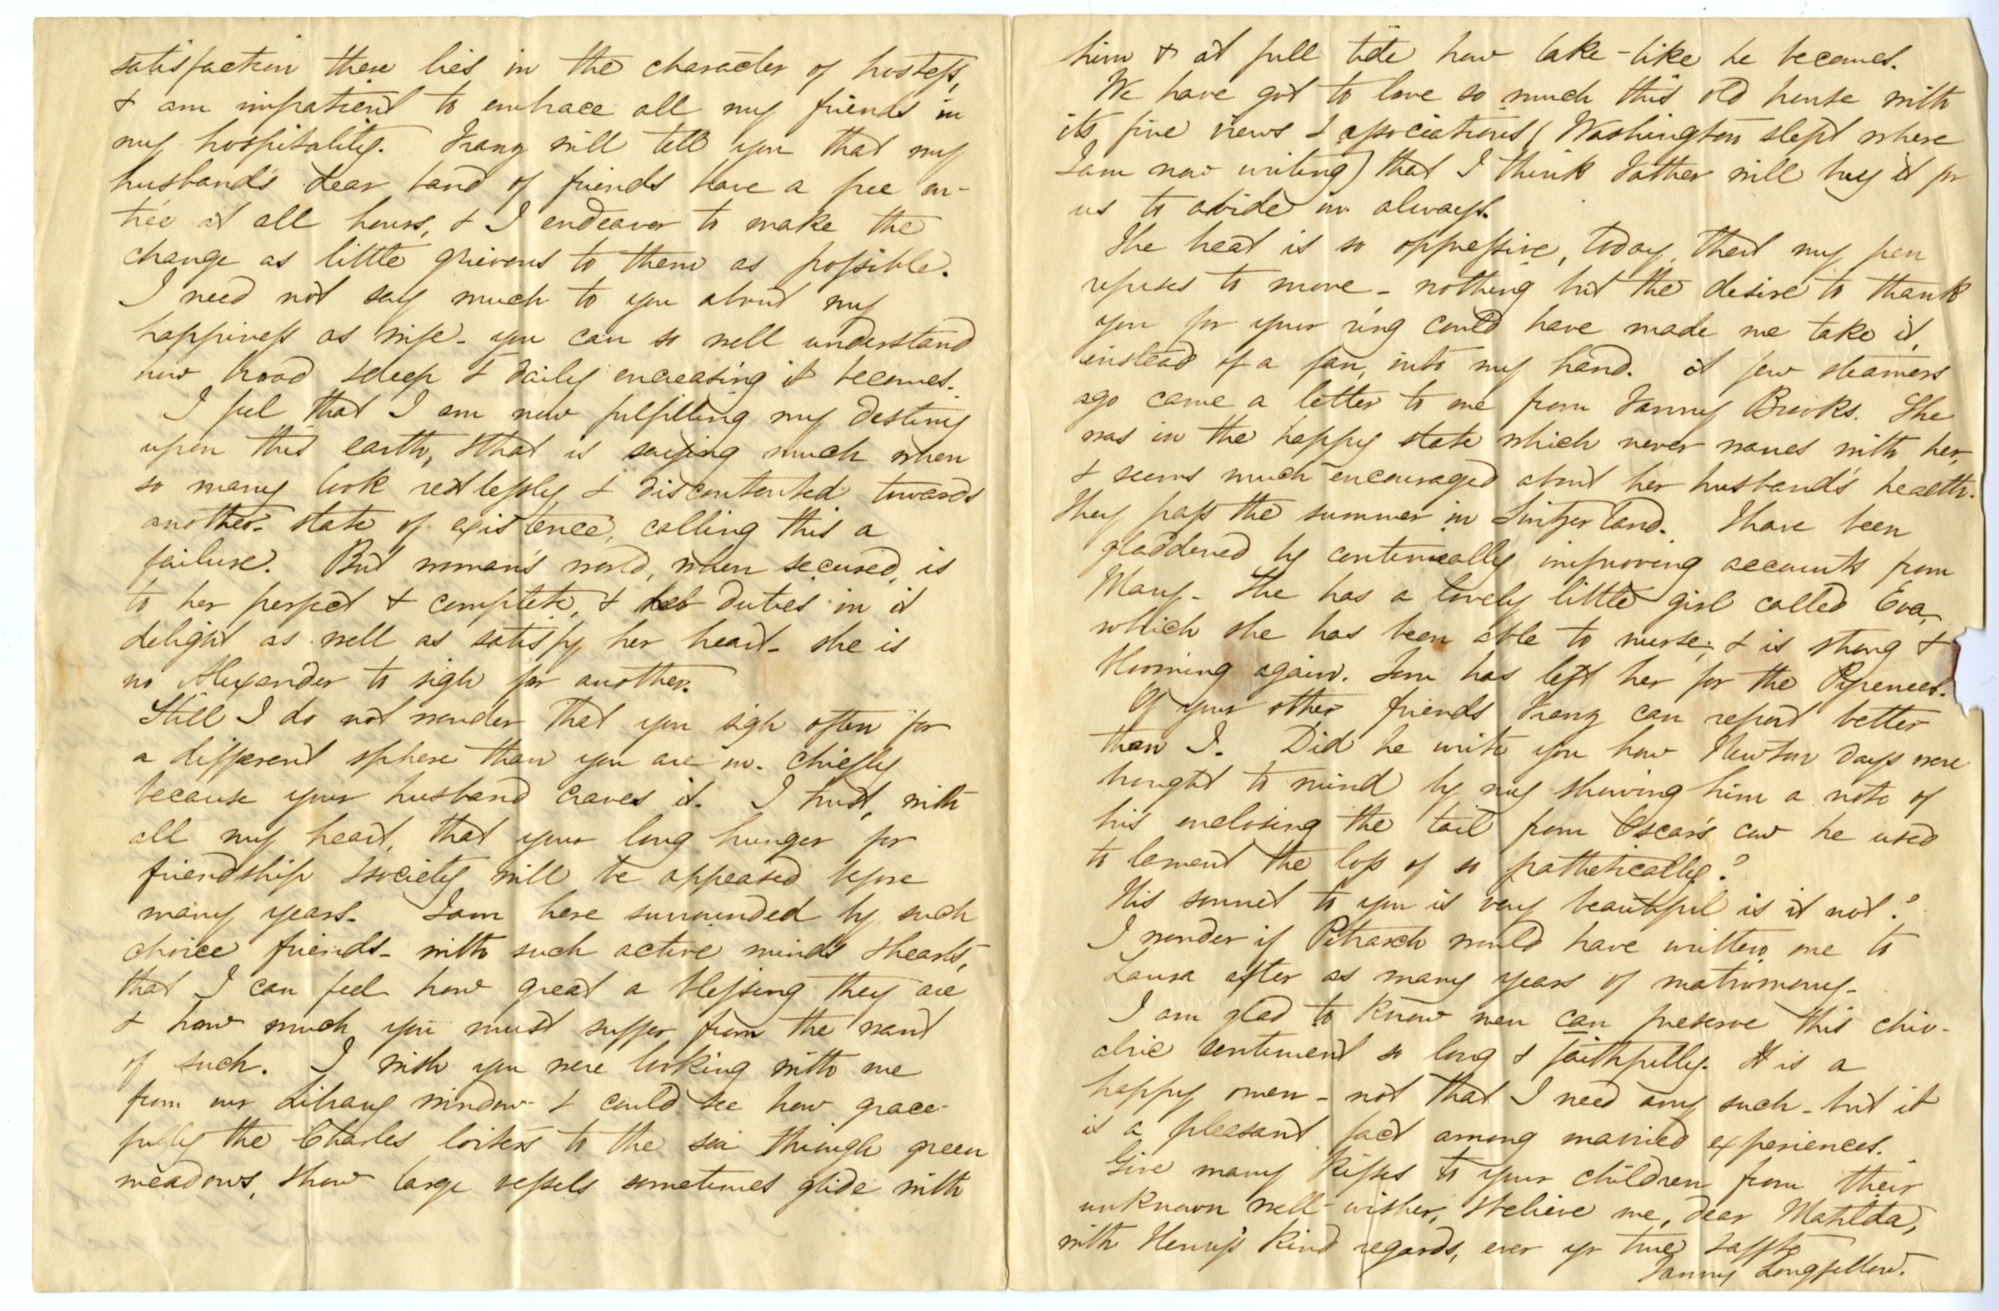 satisfaction there lies in the character of hostess,
& am impatient to embrace all my friends in
my hospitality. Franz will tell you that my
husband's dear band of friends have a free en-
trée at all hours, & I endeavor to make the
change as little grievous to them as possible.
I need not say much to you about my
happiness as wife - you can so well understand
how broad & deep & daily encreasing it becomes.
I feel that I am now fulfilling my destiny
upon this earth, & that is saying much when
so many look restlessly & discontented towards
another state of existence, calling this a
failure. But woman's world, when secured, is
to her perfect & complete, & her duties in it
delight as well as satisfy her heart - she is
no Alexander to sigh for another.
Still I do not wonder that you sigh often for
a different sphere than you are in - chiefly
because your husband craves it. I trust, with
all my heart, that your long hunger for
friendship & society will be appeased before
many years. I am here surrounded by such
choice friends - with such active minds & hearts,
that I can feel how great a blessing they are
& how much you must suffer from the want
of such. I wish you were looking with me
from our Library window & could see how grace-
fully the Charles loiters to the sea through green
meadows, & how large vessels sometimes glide with
him & at full tide how lake-like he becomes.
We have got to love so much this old house with
its fine views & associations (Washington slept where
I am now writing) that I think Father will buy it for
us to abide in always.
The heat is so oppressive, today, that my pen
refuses to move - nothing but the desire to thank
you for your ring could have made me take it,
instead of a fan, into my hand. A few steamers
ago came a letter to me from Fanny Brooks. She
was in the happy state which never wanes with her,
& seems much encouraged about her husband's health.
They pass the summer in Switzerland. I have been
gladdened by continually improving accounts from
Mary - She has a lovely little girl called Eva,
which she has been able to nurse, & is strong &
blooming again. Tom has left her for the Pyrenees.
Of your other friends Franz can report better
than I. Did he write you how Newton days were
brought to mind by my shewing him a note of
his enclosing the tail from Oscar's cow he used
to lament the loss of so pathetically?
His sonnet to you is very beautiful is it not?
I wonder if Petrarch would have written one to
Laura after as many years of matrimony -
I am glad to know men can preserve this chiv-
alric sentiment so long & faithfully. It is a
happy omen - not that I need any such - but it
is a pleasant fact among married experiences.
Give many kisses to your children from their
unknown well-wisher, & believe me, dear Matilda,
with Henry's kind regards, ever yr true
Fanny Longfellow.